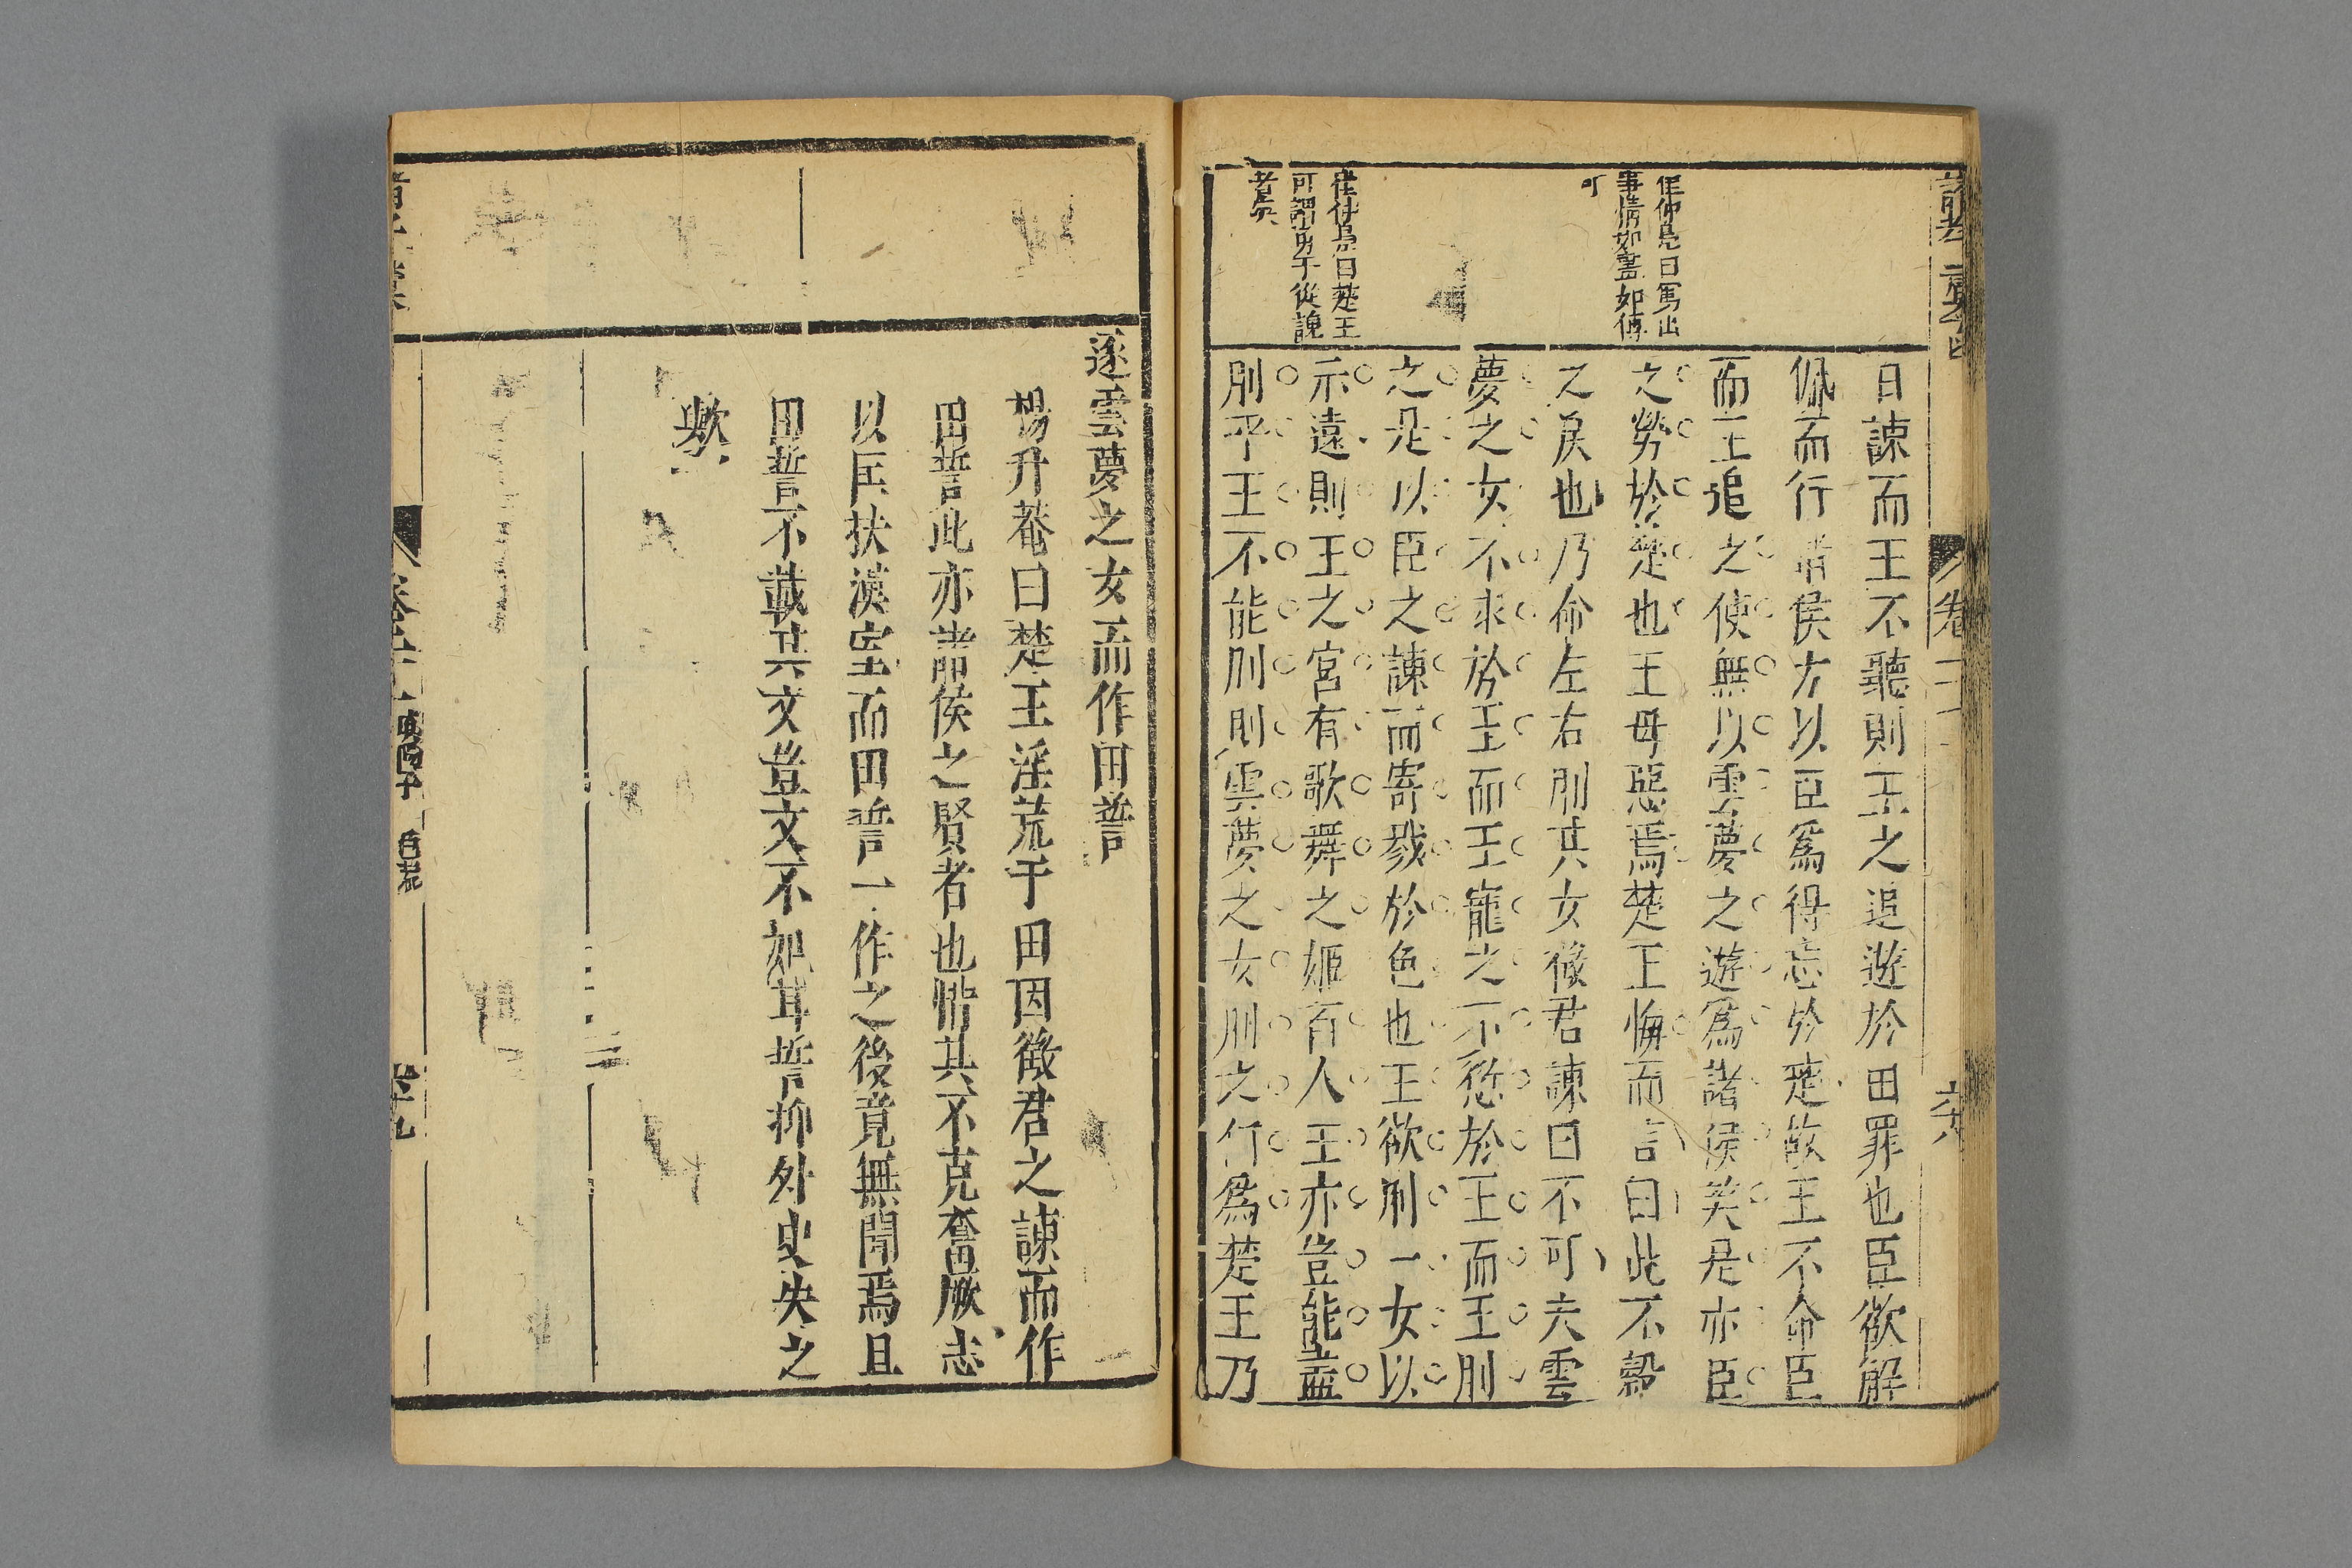 崔仲鳧曰寫出
事情如畫如傳
可
崔仲鳧曰楚王
可謂勇于從諫
者矣
曰諫而王不聽則王之追遊於田罪也臣欲解
佩而行諸侯方以臣爲得忘於楚故王不命臣
而王追之使無以雲夢之遊爲諸侯笑是亦臣
之勞於楚也王毋惡焉楚王悔而言曰此不穀
之戾也乃命左右刖其女徵君諫曰不可夫雲
夢之女不求於王而王寵之不愆於王而王刖
之是以臣之諫而寄戮於色也王欲刖一女以
示遠則王之宮有歌舞之姬百人王亦豈能盡
刖乎王不能刖刖雲夢之女刖之何爲楚王乃
卷二
六八
逐雲夢之女而作田誓
楊升菴曰楚王淫荒于田因徵君之諫而作
田誓此亦諸侯之賢者也惜其不克奮厥志
以匡扶漢室而田誓一作之後竟無聞焉且
田誓不載其文豈文不如其誓抑外史失之
歟